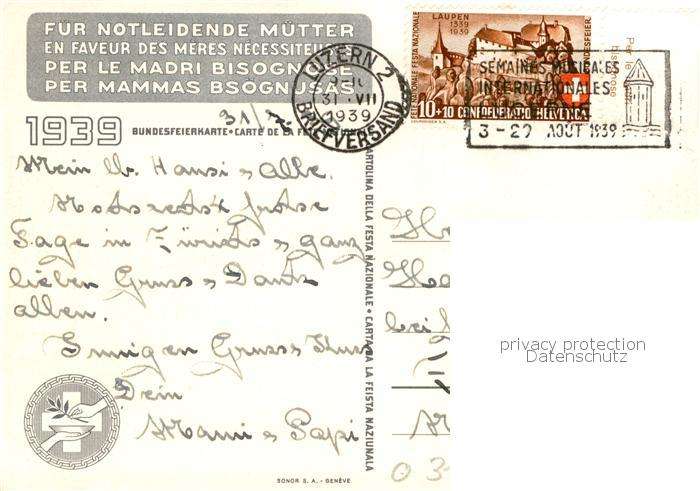 FÜR NOTLEIDENDE MÜTTER
EN FAVEUR DES MÈRES NÉCESSITEUSES
PER LE MADRI BISOGNOSE
PER MAMMAS BSOGNUSAS
1939
BUNDESFEIERKARTE • CARTE DE LA FÊTE NATIONALE
CARTOLINA DELLA FESTA NAZIONALE • CARTA DA LA FEISTA NAZIUNALA
LUZERN 2
31. VII
1939
BRIEFVERSAND
LAUPEN
1339
1939
10+10 CONFOEDERATIO HELVETICA
SEMAINES MUSICALES
INTERNATIONALES
3-29 AOUT 1939
31/
Mein lb. Hansi & alle.
Tage in Zürich & ganz
lieben Gruss & Dank
allen.
Innigen Gruss & Kuss
Dein
Mami & Papi
privacy protection
Datenschutz
SONOR S. A. - GENÈVE.